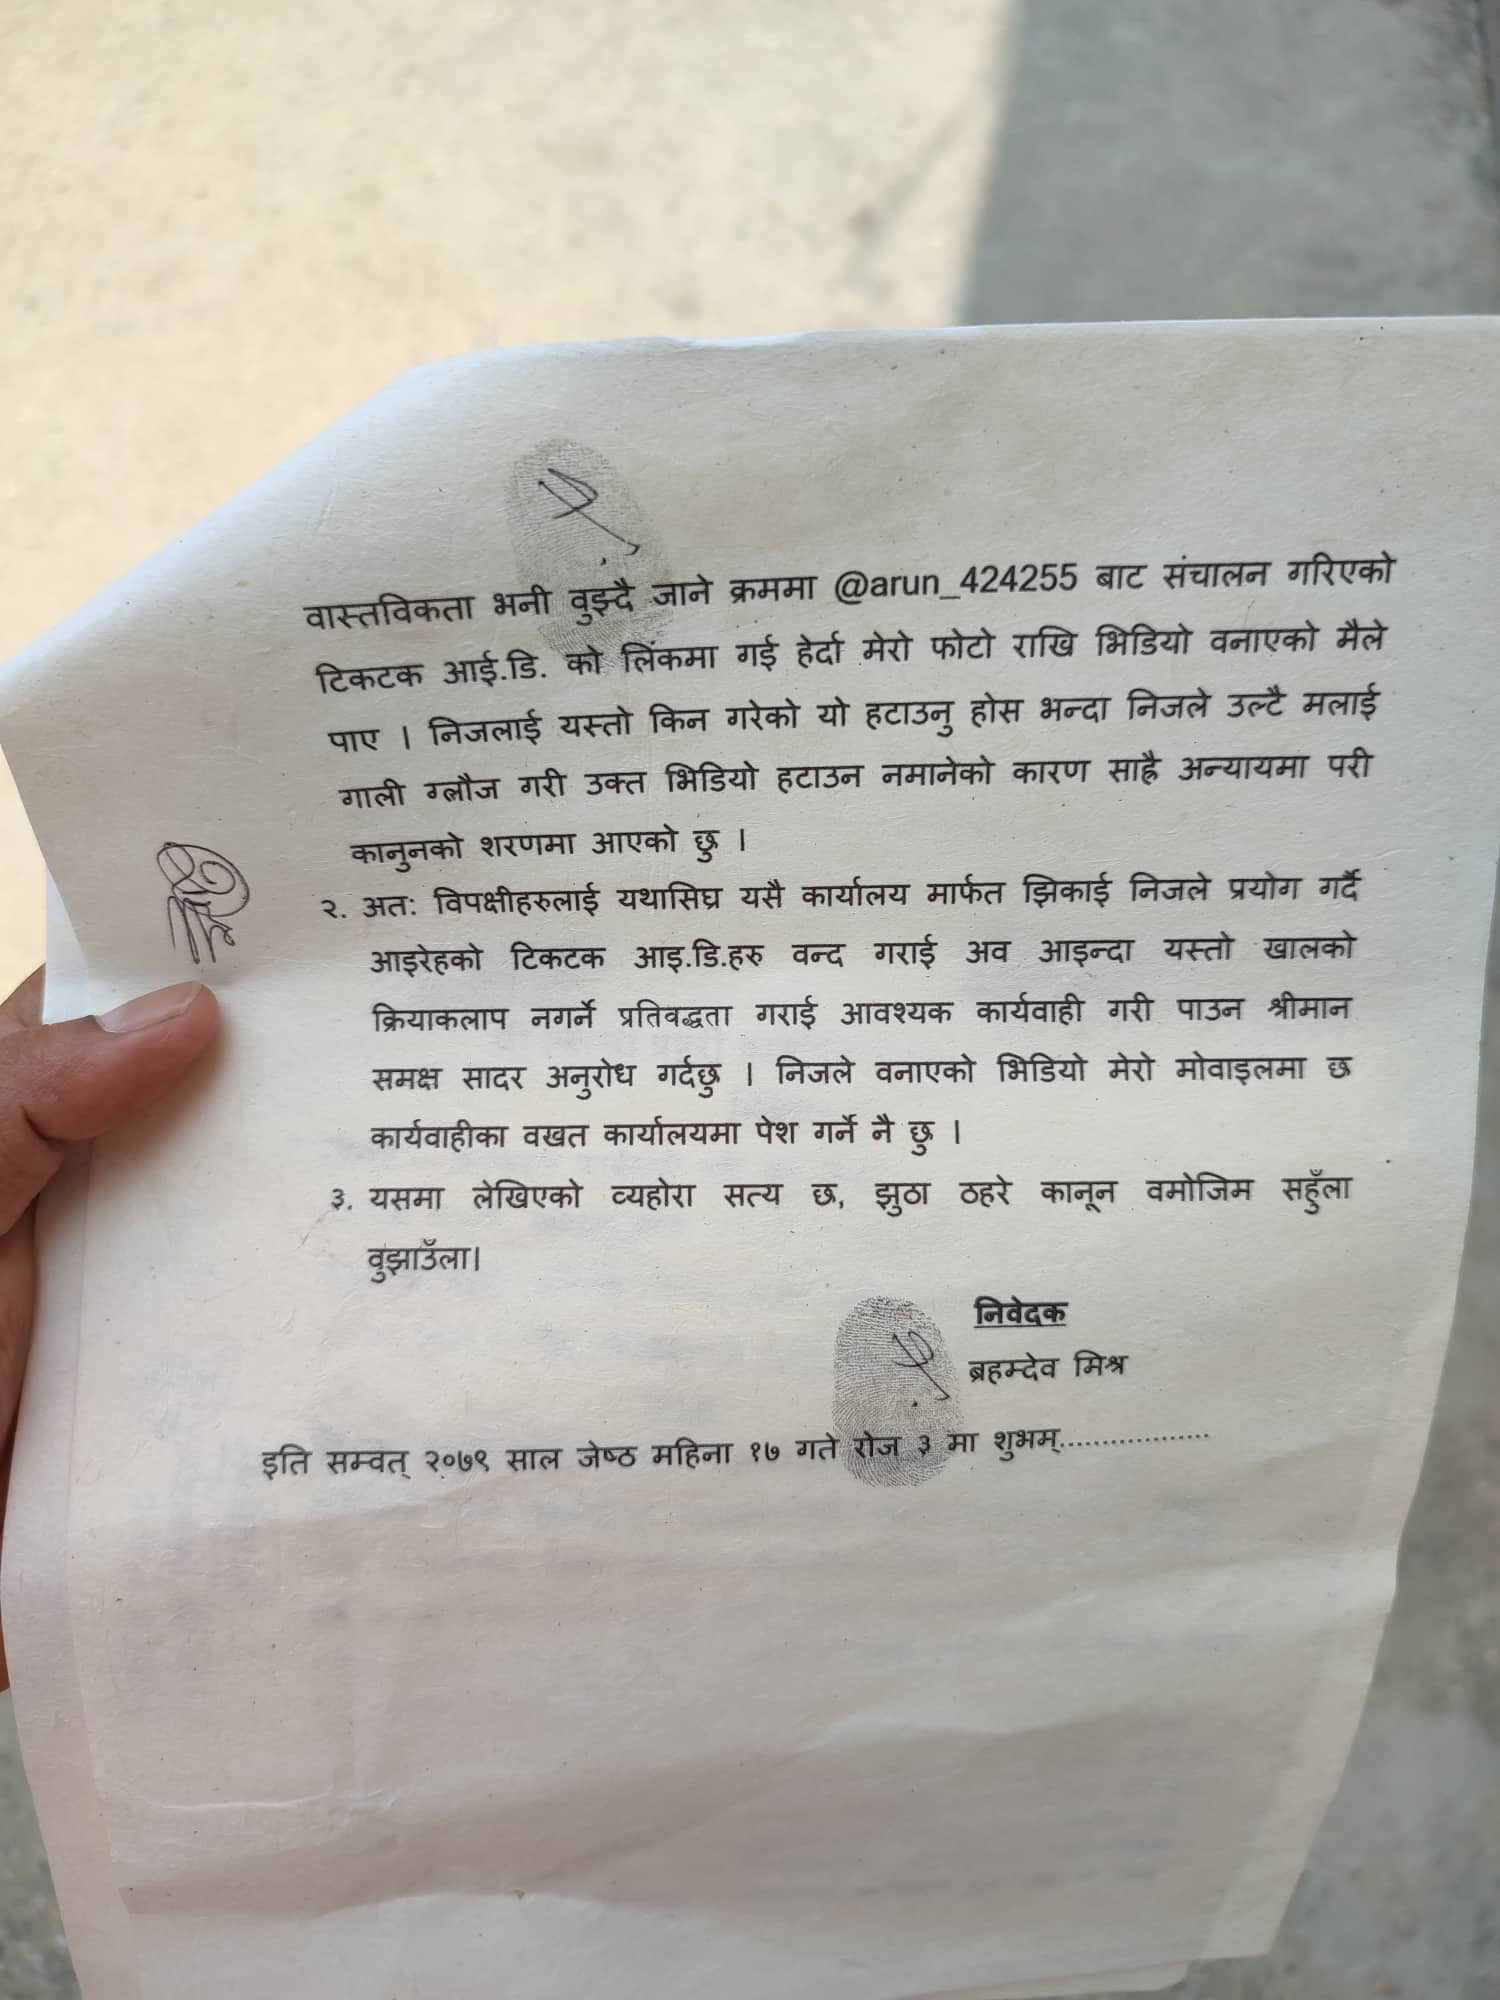 वास्तविकता भनी वुझ्दै जाने क्रममा @arun_424255 बाट संचालन गरिएको
टिकटक आई.डि. को लिंकमा गई हेर्दा मेरो फोटो राखि भिडियो वनाएको मैले
पाए । निजलाई यस्तो किन गरेको यो हटाउनु होस भन्दा निजले उल्टै मलाई
गाली ग्लौज गरी उक्त भिडियो हटाउन नमानेको कारण साह्रै अन्यायमा परी
कानुनको शरणमा आएको छु ।
२. अत: विपक्षीहरुलाई यथासिघ्र यसै कार्यालय मार्फत झिकाई निजले प्रयोग गर्दै
आइरेहको टिकटक आइ.डि.हरु वन्द गराई अव आइन्दा यस्तो खालको
क्रियाकलाप नगर्ने प्रतिवद्धता गराई आवश्यक कार्यवाही गरी पाउन श्रीमान
समक्ष सादर अनुरोध गर्दछु । निजले वनाएको भिडियो मेरो मोवाइलमा छ
कार्यवाहीका वखत कार्यालयमा पेश गर्ने नै छु ।
३. यसमा लेखिएको व्यहोरा सत्य छ, झुठा ठहरे कानून वमोजिम सहुँला
वुझाउँला।
निवेदक
ब्रहम्देव मिश्र
इति सम्वत् २०७९ साल जेष्ठ महिना १७ गते रोज ३ मा शुभम्..................